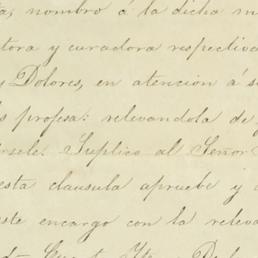 nombro á la dicha
tora y curadora respectiva
y Dolores, en atención á s
s profesa: relevandola de
rsele. Suplico al Señor
esta clausula apruebe y
ste encargo con la releva